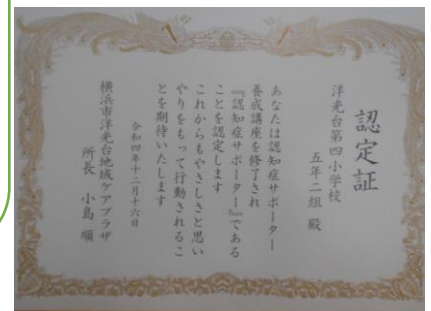 認定証
洋光台第四小学校
五年二組 殿
あなたは認知症サポーター
養成講座を修了され
『認知症サポーター』である
ことを認定します
これからもやさしさと思い
やりをもって行動されるこ
とを期待いたします
令和四年十二月十六日
横浜市洋光台地域ケアプラザ
所長 小島 順